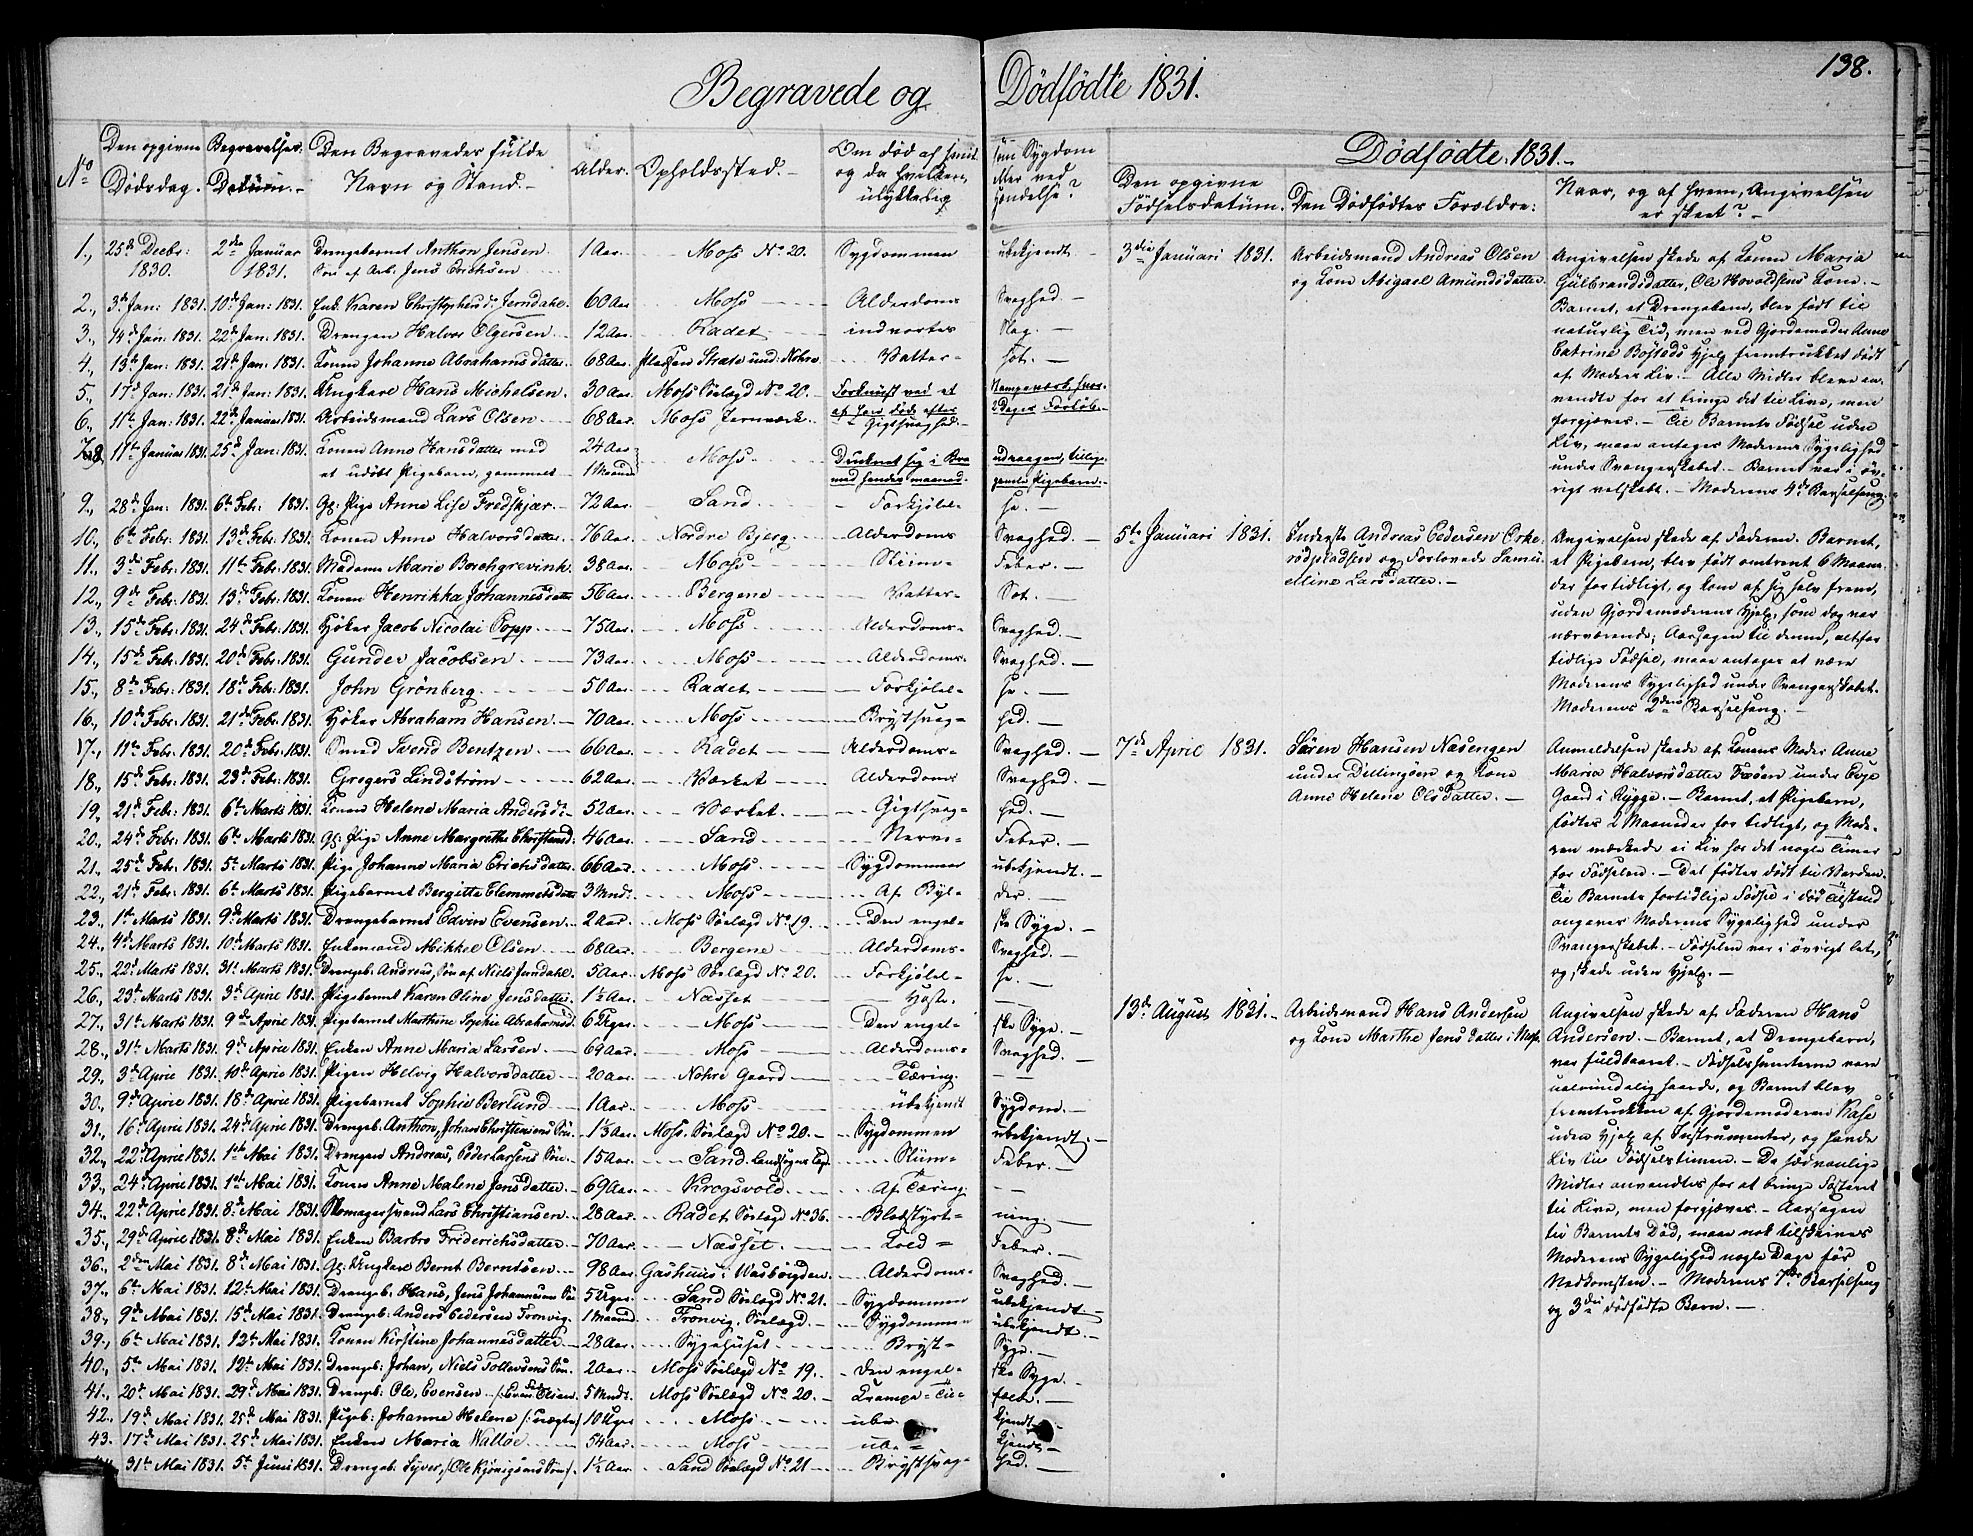 138.
Begravede og Dödfödte 1831.
No
Den opgivne Dödsdag.
Begravelses Datum.
Den Begravedes fulde Navn og Stand.
Alder.
Opholdssted.
Om död af
og da hvilken,
ulykkelig
som Sygdom
eller ved
Hændelse?
Dödfödte 1831.
Den opgivne Födselsdatum.
Den Dödfödtes Forældre.
Naar, og af hvem, Angivelsen er skeet?
1., 25de Decbr: 1830. 2den Januar 1831. Drengebarnet Anthon Jensen Sön af Arb. Jens Erichsen 1 Aar Moss No 20. Sygdommen ubekjendt.
2., 3de Jan: 1831. 10de Jan: 1831. Enk. Karen Christophersd. Jerndahl. 60 Aar Moss Alderdoms Svaghed.
3., 14de Jan: 1831. 22de Jan: 1831. Drengen Halvor Olgersen 12 Aar Radet indvortes Slag.
4., 13de Jan: 1831. 21de Jan: 1831. Konen Johanne Abrahamsdatter 68 Aar Pladsen Stræte und: Nohre Vatter- sot.
5., 17de Jan: 1831. 21de Jan: 1831. Ungkarl Hans Michelsen. 30 Aar Moss Sölægd No 20. Forknust ved et
6., 11te Jan: 1831. 22de Januar 1831. Arbeidsmand Lars Olsen 68 Aar Moss Jernværk Gigtsvaghed.
7.,8., 11te Januar 1831. 25de Jan: 1831. Konen Anne Hansdatter med et udöbt Pigebarn, gammel 24 Aar 1 Maaned Moss Druknet sig i
9., 28de Jan: 1831. 6te Feb: 1831. Gl: Pige Anne Lise Fredskjær 72 Aar Sand Forkjölel- se.
10., 6te Febr: 1831. 13de Febr: 1831. Konen Anne Halvorsdatter 76 Aar Nordre Bjerg Alderdoms Svaghed.
11., 3de Febr: 1831. 11te Febr: 1831. Madame Marie Borchgrevink. 38 Aar Moss Sliim- Feber.
12., 9de Febr: 1831. 13de Febr: 1831. Konen Henrikka Johannesdatter 56 Aar Bergene Vatter- Sot.
13., 15de Febr: 1831. 24de Febr: 1831. Höker Jacob Nicolai Popp 75 Aar Moss Alderdoms- Svaghed.
14., 15de Feb: 1831. 20de Febr: 1831. Gunder Jacobsen 73 Aar Moss Alderdoms- Svaghed.
15., 8de Febr: 1831. 18de Febr: 1831. John Grönberg 50 Aar Radet Forkjölel- se.
16., 10de Febr: 1831. 21de Febr: 1831. Höker Abraham Hansen 70 Aar Moss Brystsvag- hed.
17., 11te Febr: 1831. 20de Febr: 1831. Smed Svend Bentzen 66 Aar Radet Alderdoms- Svaghed.
18., 15de Febr: 1831. 23de Febr: 1831. Gregers Lindström 62 Aar Værket Alderdoms Svaghed.
19., 21de Feb: 1831. 6te Marts 1831. Konen Helene Maria Andersdr 52 Aar Værket. Gigtsvag- hed.
20., 24de Febr: 1831. 6te Marts 1831. Gl: Pige Anne Margrethe Christiansd. 46 Aar Sand Nerve- Feber.
21., 25de Febr. 1831. 5te Marts 1831. Pige Johanne Maria Erichsdatter 66 Aar Moss Sygdommen ubekjendt.
22., 21de Feb: 1831. 6te Marts 1831. Pigebarnet Bergitte Clemmetsdatter 3 Mnd: Moss Af Byl- der.
23., 1te Marts 1831. 9de Marts 1831. Drengebarnet Edvin Evensen 2 Aar Moss Sölægd No 19. Den engel- ske Syge.
24., 4de Marts 1831. 10de Marts 1831. Enkemand Mikkel Olsen 68 Aar Bergene Alderdoms- Svaghed.
25., 22de Marts 1831. 31te Marts 1831. Drengeb: Andreas, Sön af Niels Jerndahl. 5 Aar Moss Sölægd No 20. Forkjölel- se.
26., 23de Marts 1831. 3de April 1831. Pigebarnet Karen Oline Jensdatter. 1½ Aar Næsset Hoste.
27., 31te Marts 1831. 9de April 1831. Pigebarnet Marthine Sophie Abrahamsd. 6 Uger Moss Den engel- ske Syge.
28., 31te Marts 1831. 9de April 1831. Enken Anne Maria Larsen 69 Aar Moss Alderdoms- Svaghed.
29., 3de April 1831. 10de April 1831. Pigen Helvig Halvorsdatter 20 Aar Nohre Gaard Tæring.
30., 9de April 1831. 18de April 1831. Pigebarnet Sophie Berlund 1 Aar Moss ubekjendt Sygdom.
31., 16de April 1831. 24de April 1831. Drengeb: Anthon, Johan Christiansens Sön. 1⅓ Aar Moss Sölægd No 20. Sygdommen ubekjendt.
32., 22de April 1831. 1te Mai 1831. Drengen Andreas, Peder Larsens Sön. 15 Aar Sand Sliim- Feber.
33., 24de April 1831. 1te Mai 1831. Konen Anne Malene Jensdatter 69 Aar Krogsvold Af Tæring.
34., 22de April 1831. 8de Mai 1831. Skomagersvend Lars Christiansen 28 Aar Radet Sölægd No 36. Blodstyrt- ning.
35., 29de April 1831. 8de Mai 1831. Enken Barbro Friderichsdatter 70 Aar Næsset Kold- Feber.
36., 2den Mai 1831. 8de Mai 1831. Gl: Ungkarl Bernt Berntsen 98 Aar Gashuus: Wasböigden. Alderdoms- Svaghed.
37., 6te Mai 1831. 12te Mai 1831. Drengeb: Hans, Jens Johannesens Sön 5 Uger Sand Sölægd No 21. Sygdommen ubekjendt
38., 9de Mai 1831. 15de Mai 1831. Drengeb: Anders Pedersen Tronvig. 1 Maaned Tronvig. Sölægd. Sygdommen ubekjendt.
39., 6te Mai 1831. 12te Mai 1831. Konen Kirstine Johannesdatter 28 Aar. Sygehuset Bryst- Syge.
40., 5te Mai 1831. 12te Mai 1831. Drengeb: Johan, Niels Tollevsens Sön. 2 Aar. Moss Sölægd No 19. Den engel- ske Syge.
41., 20de Mai 1831. 29de Mai 1831. Drengeb: Ole, Evensen 5 Mndr. Moss Sölægd No 20. Krampe-Til- fælde.
42., 19de Mai 1831. 25de Mai 1831. Pigeb: Johanne Helene /: uægte/ 10 Uger Moss ube- kjendt
43. 17de Mai 1831. 25de Mai 1831. Enken Maria Walløe 54 Aar Moss ube- kjendt
31te Mai 1831. 5te Juni 1831. Drengeb: Syver, /Ole Kjönigsens Sön/. 1½ Aar. Sand Sölægd No 21 Brystsvag- hed.
3die Januari 1831.
Arbeidsmand Andreas Olsen
og Kone Abigael Amundsdatter.
Angivelsen skede af Konen Maria
Gulbrandsdatter, Ole Hovoldsens Kone.
Barnet, et Drengebarn, blev födt til
naturlig Tid, men ved Gjordemoder Anne
Catrine Böstads Hjelp fremtrukket dödt
af Moders Liv. - Alle Midler bleve an-
vendte for at bringe det til Live, men
forgjæves. - Til Barnets Födsel uden
Liv, maa antages Moderens Sygelighed
under Svangerskabet. - Barnet var i öv-
rigt velskabt. - Moderens 4de Barselseng.
5te Januari 1831.
Inderste Andreas Pedersen
og Forlovede
Mine Larsdatter.
Angivelsen skede af Faderen. Barnet,
et Pigebarn, blev födt omtrent 6 Maane-
der fortidligt, og kom af sig selv frem,
uden Gjordemoderens Hjelp, som dog var
nærværende; Aarsagen til denne, altfor
tidlige Födsel, maa antages at være
Moderens Sygelighed under Svangerskabet.
Moderens 2den Barselseng.
7de April 1831.
Sören Hansen Næsengen
under Dillingöen og Kone
Anne Helene Olsdatter.
Anmeldelsen skede af Konens Moder Anne
Maria Halvorsdatter under Evje
Gaard i Rygge. - Barnet, et Pigebarn,
födtes 2 Maaneder for tidligt, og Mode-
ren mærkede ei Liv hos det nogle Timer
for Födselen. - Det födtes dödt til Verden.
Til Barnets fortidlige Födsel i död Tilstand
angives Moderens Sygelighed under
Svangerskabet. - Födselen var i övrigt let,
og skede uden Hjelp.
13de August 1831.
Arbeidsmand Hans Andersen
og Kone Marthe Jensdatter i Moss.
Angivelsen skede af Faderen Hans
Andersen. - Barnet, et Drengebarn,
var fuldbaaret. - Födselssmerterne vare
ualmindelig haarde, og Barnet blev
fremtrukken af Gjordemoderen Vase
uden Hjelp af Instrumenter, og havde
Liv til Födselstimen. - De sædvanlige
Midler anvendtes for at bringe Fosteret
til Live, men forgjæves. - Aarsagen
til Barnets Död, maa nok tilskrives
Moderens Sygelighed nogle Dage för
Nedkomsten. - Moderens 7de Barselseng
og 3die dödfödte Barn.